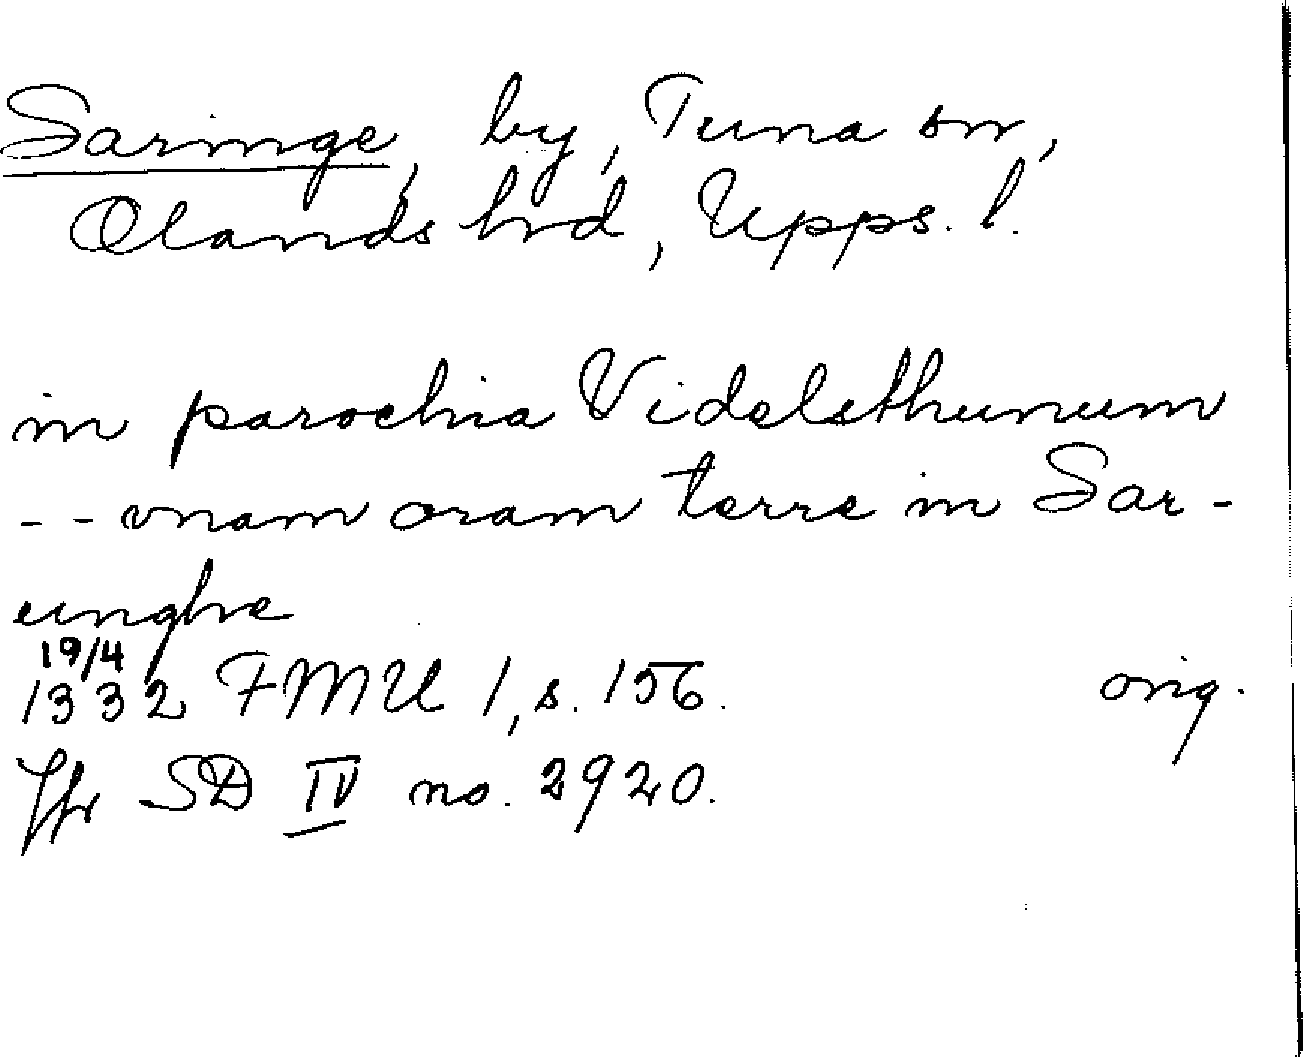 Saringe, by, Tuna sn,
Olands hrd, Upps. l.
in parochia Videlsthunum
- - vnam oram terre in Sar-
unghe
19/4
1332 FMU 1, s. 156. orig.
Jfr SD IV no. 2920.